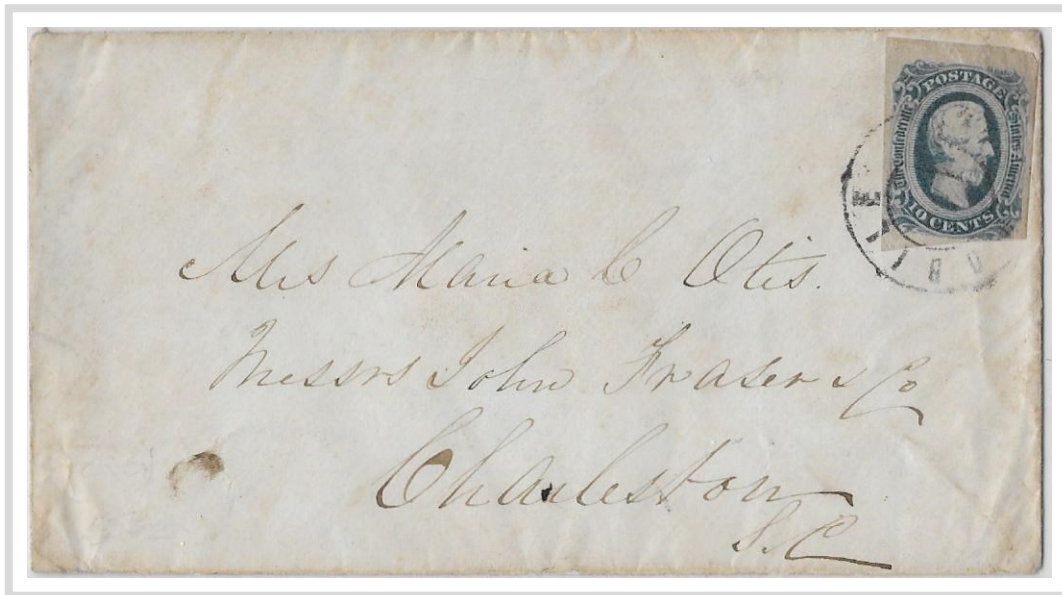 POSTAGE
The Confederate States America
10 CENTS
OBILE
Mrs Maria C Otis.
Messrs John Fraser & Co
Charleston
S.C